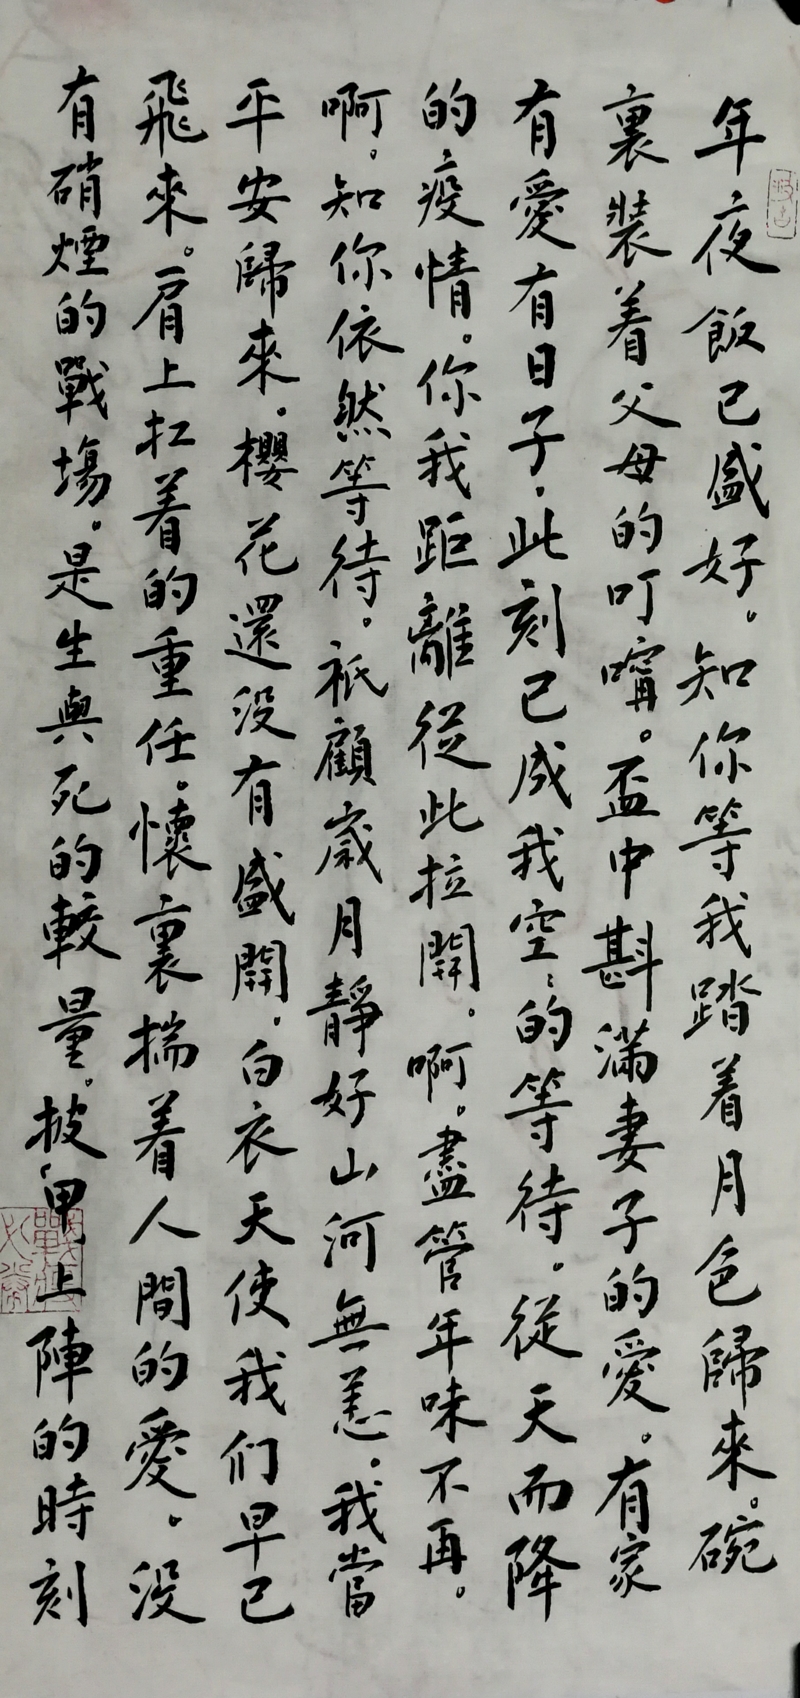 年夜飯已盛好。知你等我踏着月色歸來。碗
裏裝着父母的叮嚀。盃中斟滿妻子的愛。有家
有愛有日子。此刻已成我空〻的等待。從天而降
的疫情。你我距離從此拉開。啊。盡管年味不再。
啊。知你依然等待。祇顧歲月靜好山河無恙。我當
平安歸來。櫻花還没有盛開。白衣天使我们早已
飛來。肩上扛着的重任。懷裏揣着人間的愛。没
有硝煙的戰場。是生與死的較量。披甲上陣的時刻